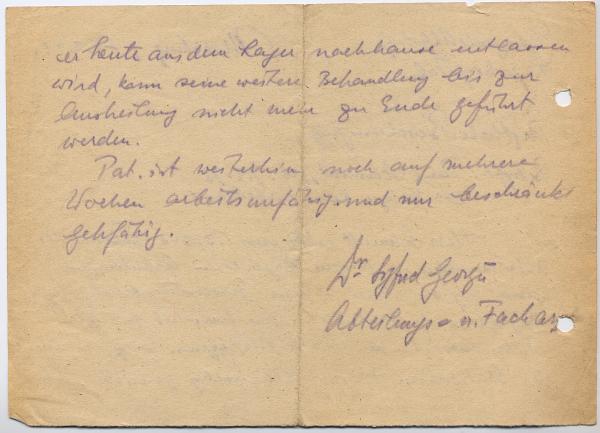 er heute aus dem Lager nachhause entlassen
wird, kann seine weitere Behandlung bis zur
Ausheilung nicht mehr zu Ende geführt
werden.
Pat. ist weiterhin noch auf mehrere
Wochen arbeitsunfähig und nur beschränkt
gehfähig.
Dr
Abteilungs- u. Facharz